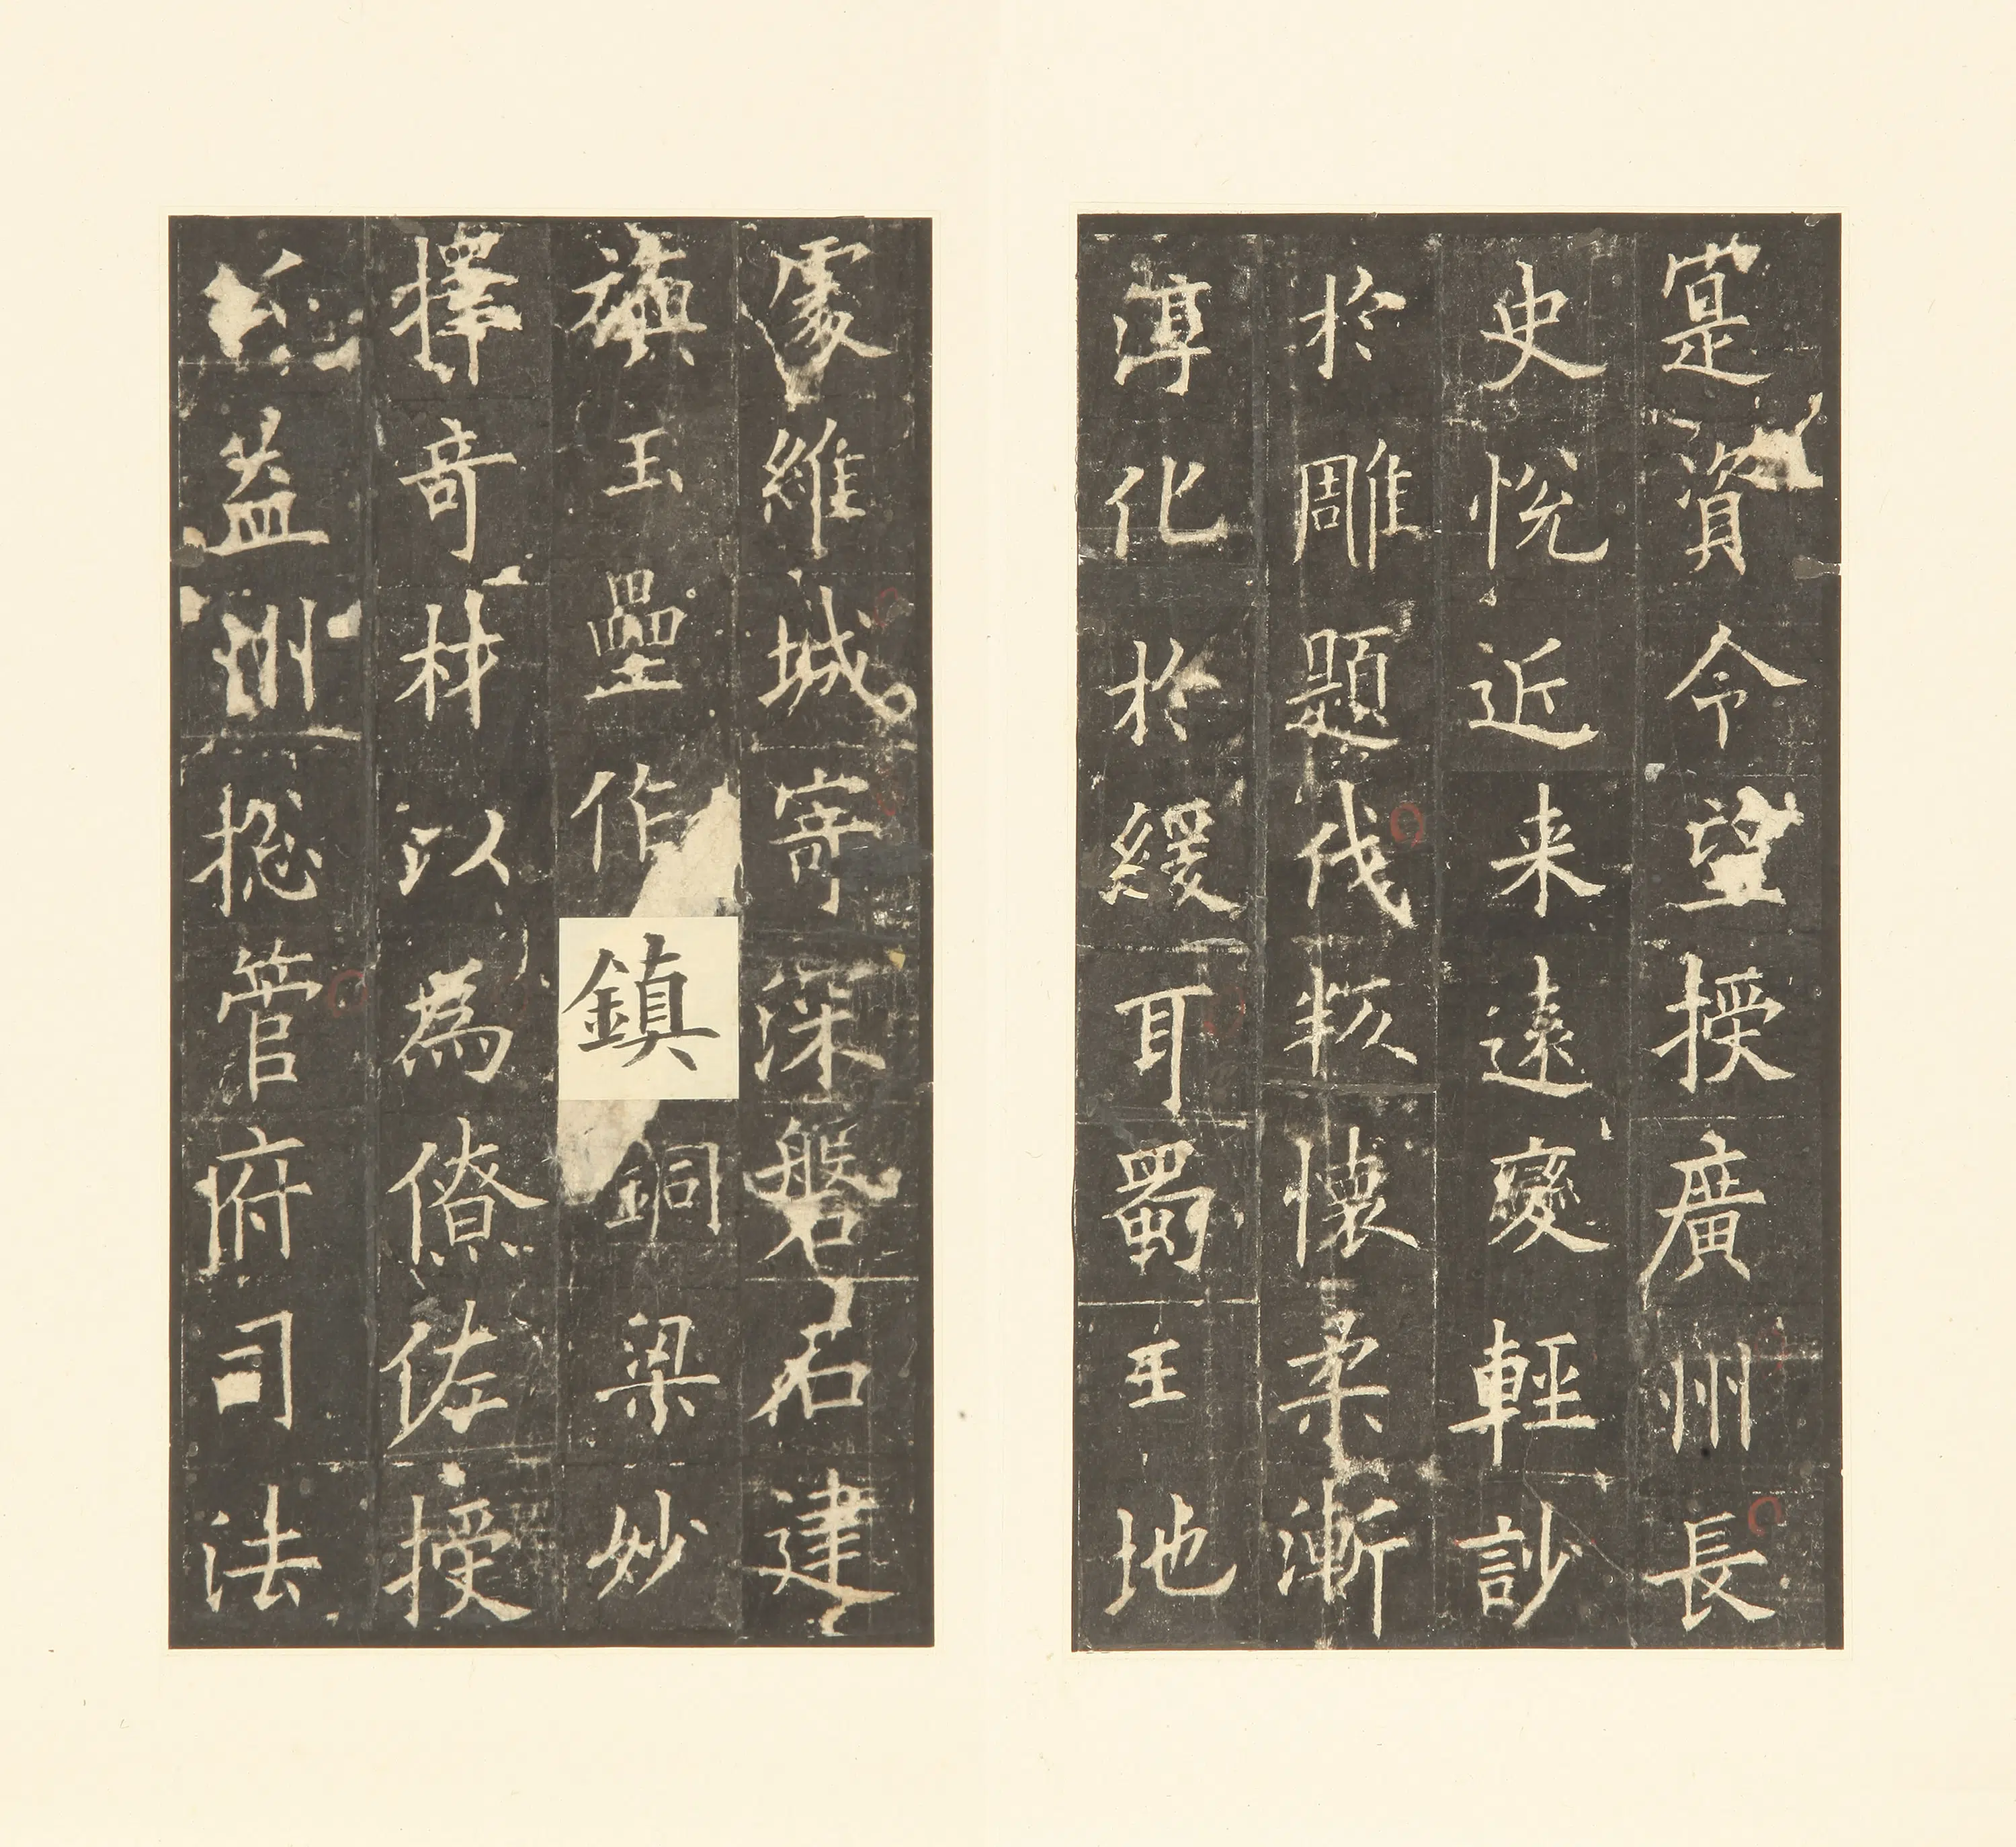 寔資令望授廣州長
史悅近来遠變輕訬
於雕題伐叛懷柔漸
淳化於緩耳蜀王地
處維城寄深磐石建
旟玉壘作鎮銅梁妙
擇奇材以為僚佐授
益州捴管府司法